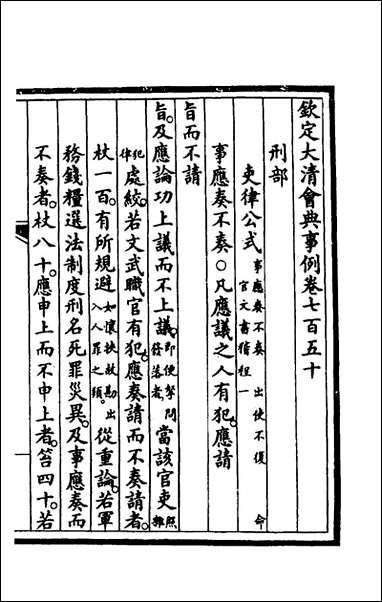 欽定大清會典事例卷七百五十
刑部
吏律公式事應奏不奏 出使不復命 官文書稽程一
事應奏不奏○凡應議之人有犯。應請
旨而不請
旨。及應論功上議而不上議。即便拏問發落者。當該官吏。照雜
犯律處絞。若文武職官有犯。應奏請而不奏請者。
杖一百。有所規避如懷挾故勘出入人罪之類。從重論。若軍
務錢糧選法制度刑名死罪災異。及事應奏而
不奏者。杖八十。應申上而不申上者。笞四十。若